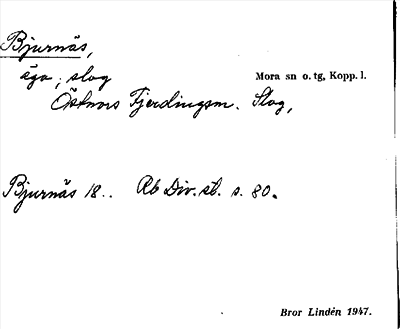 Bjurnäs,
äga, slog
Mora sn o. tg, Kopp. l.
Östnors Fjerdingsm. Slog,
Bjurnäs 18.. Rb Div. st. s. 80.
Bror Lindén 1947.